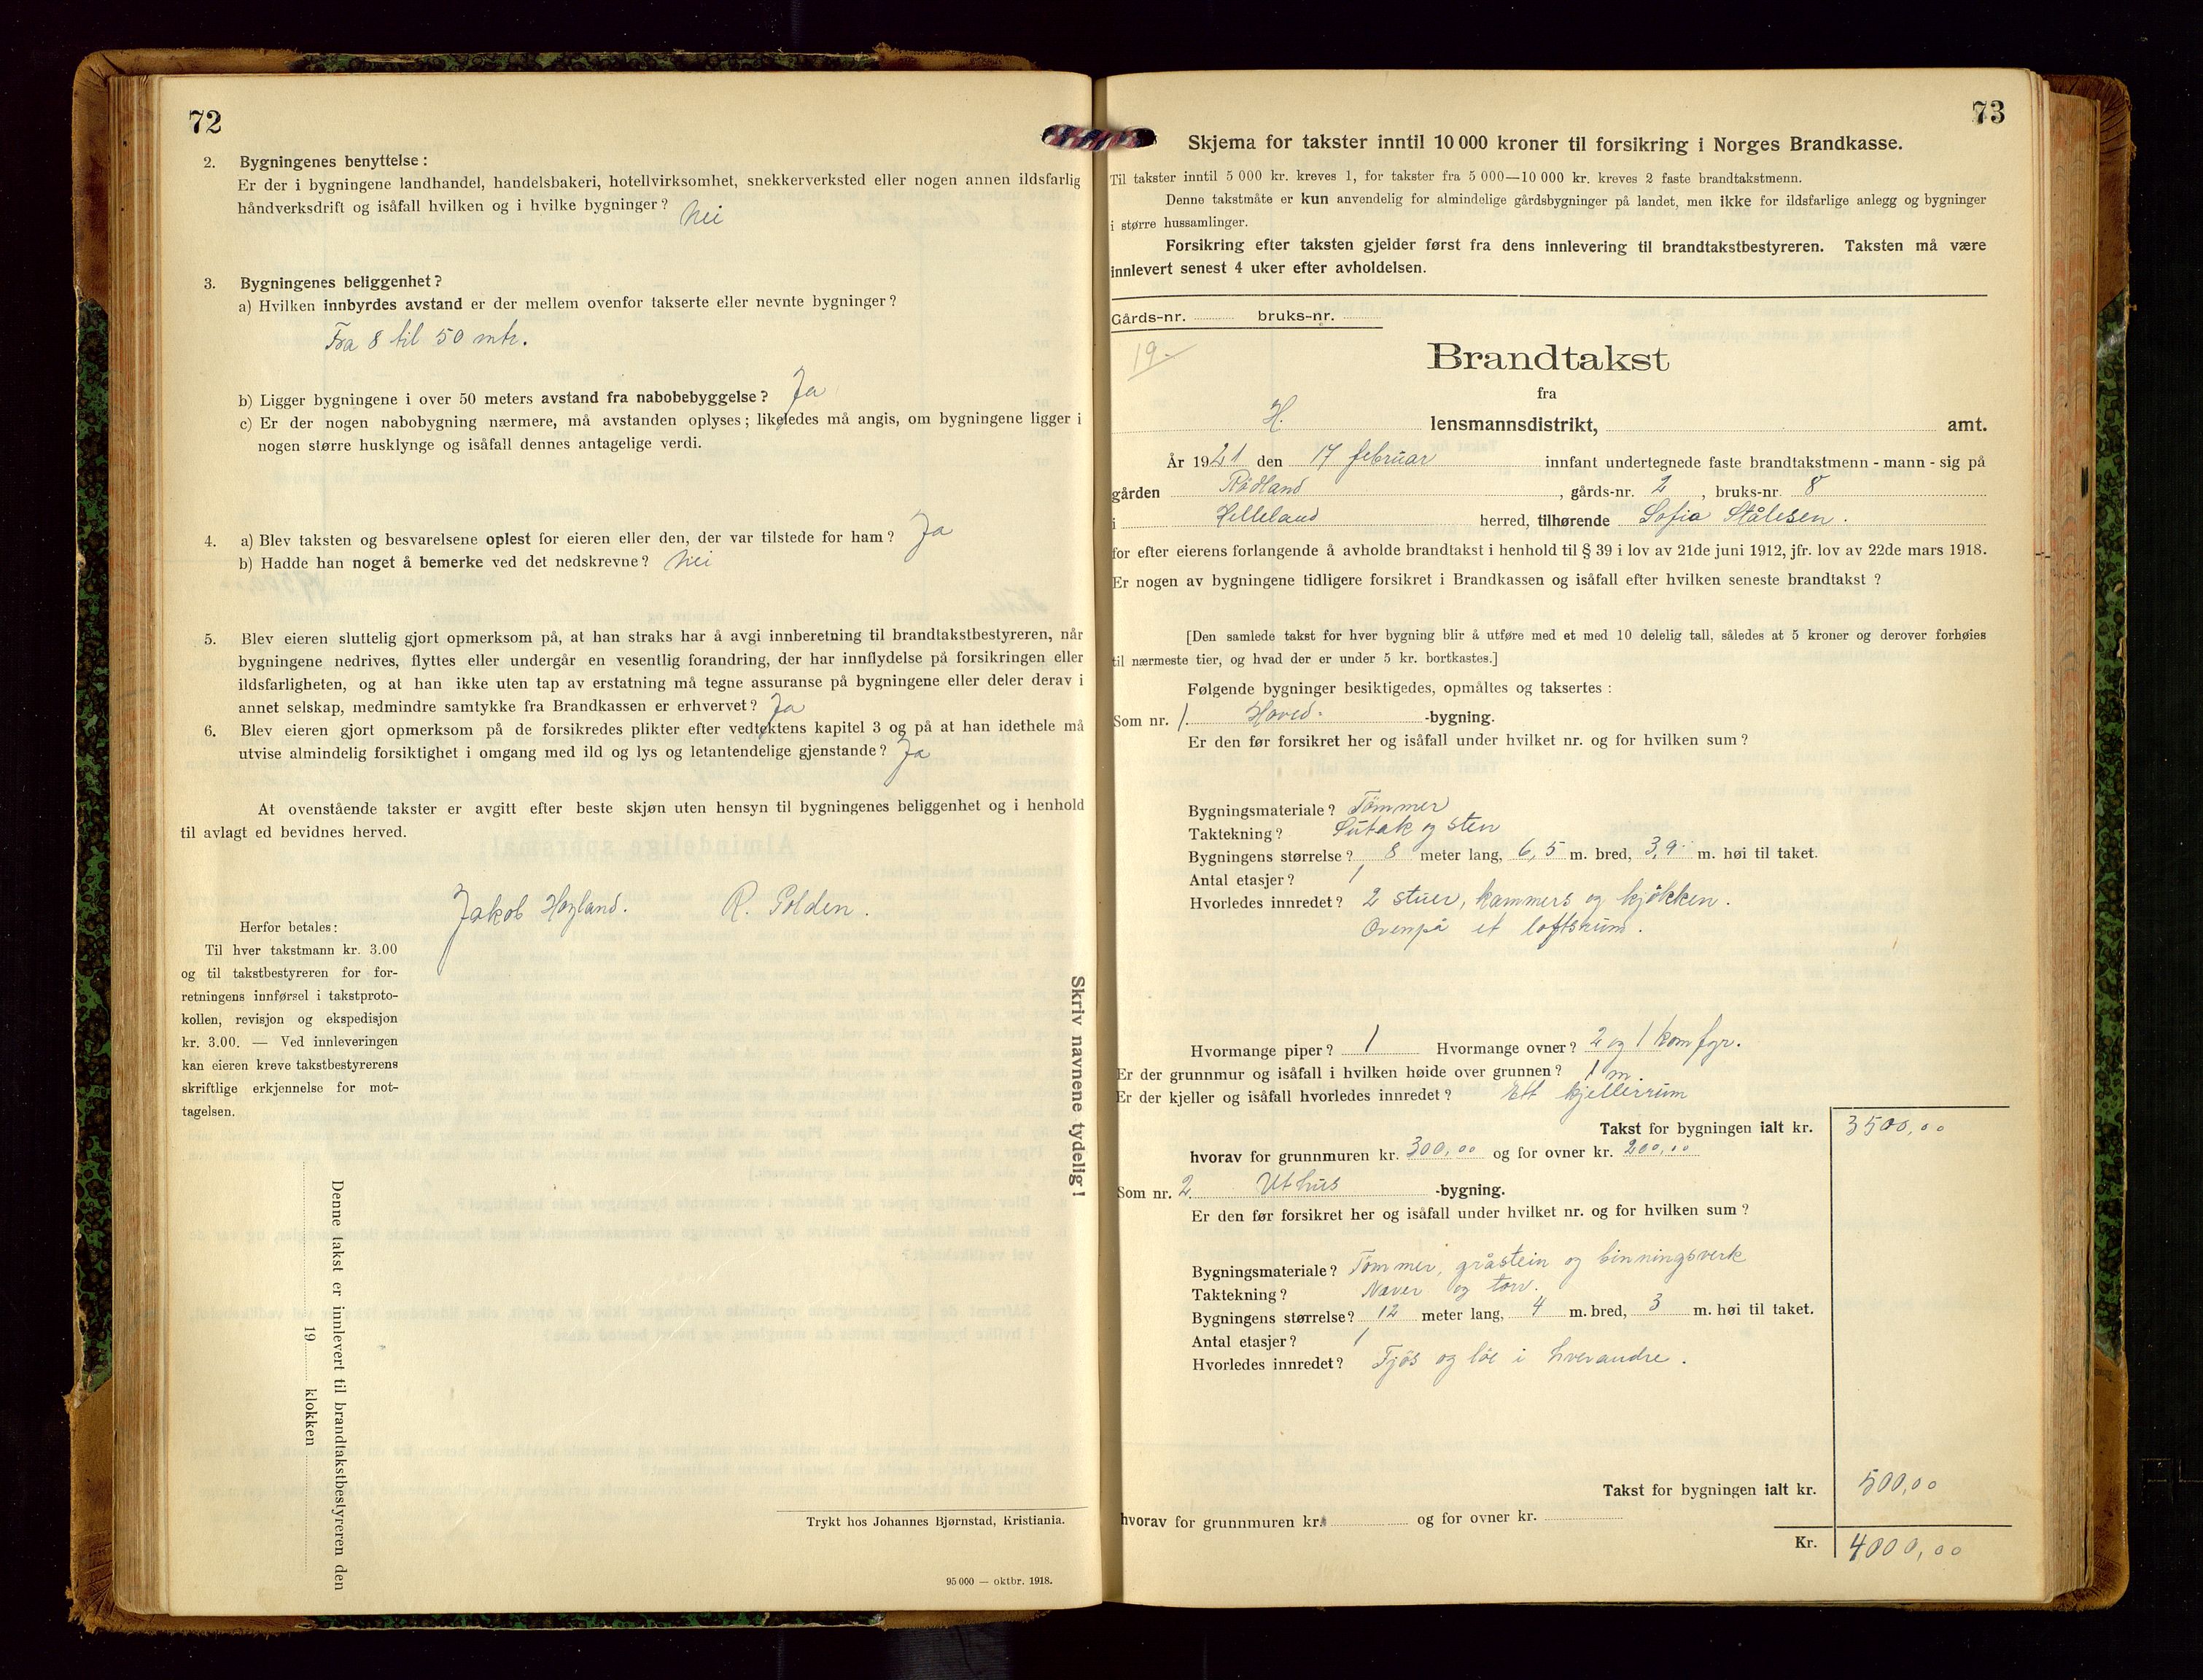 72
2. Bygningenes benyttelse:
Er der i bygningene landhandel, handelsbakeri, hotellvirksomhet, snekkerverksted eller nogen annen ildsfarlig
håndverksdrift og isåfall hvilken og i hvilke bygninger? Nei
3. Bygningenes beliggenhet?
a) Hvilken innbyrdes avstand er der mellem ovenfor takserte eller nevnte bygninger?
Fra 8 til 50 mtr.
b) Ligger bygningene i over 50 meters avstand fra nabobebyggelse? Ja
c) Er der nogen nabobygning nærmere, må avstanden oplyses; likeledes må angis, om bygningene ligger i
nogen større husklynge og isåfall dennes antagelige verdi.
4. a) Blev taksten og besvarelsene oplest for eieren eller den, der var tilstede for ham? Ja
b) Hadde han noget å bemerke ved det nedskrevne? Nei
5. Blev eieren sluttelig gjort opmerksom på, at han straks har å avgi innberetning til brandtakstbestyreren, når
bygningene nedrives, flyttes eller undergår en vesentlig forandring, der har innflydelse på forsikringen eller
ildsfarligheten, og at han ikke uten tap av erstatning må tegne assuranse på bygningene eller deler derav i
annet selskap, medmindre samtykke fra Brandkassen er erhvervet? Ja
6. Blev eieren gjort opmerksom på de forsikredes plikter efter vedtektens kapitel 3 og på at han idethele må
utvise almindelig forsiktighet i omgang med ild og lys og letantendelige gjenstande? Ja
At ovenstående takster er avgitt efter beste skjøn uten hensyn til bygningenes beliggenhet og i henhold
til avlagt ed bevidnes herved.
Jakob Høyland. R. Polden.
Herfor betales:
Til hver takstmann kr. 3.00
og til takstbestyreren for for-
retningens innførsel i takstproto-
kollen, revisjon og ekspedisjon
kr. 3.00. — Ved innleveringen
kan eieren kreve takstbestyrerens
skriftlige erkjennelse for mot-
tagelsen.
Skriv navnene tydelig!
Denne takst er innlevert til brandtakstbestyreren den
19 klokken
Trykt hos Johannes Bjørnstad, Kristiania.
95 000 — oktbr. 1918.
73
Skjema for takster inntil 10 000 kroner til forsikring i Norges Brandkasse.
Til takster inntil 5 000 kr. kreves 1, for takster fra 5 000—10 000 kr. kreves 2 faste brandtakstmenn.
Denne takstmåte er kun anvendelig for almindelige gårdsbygninger på landet, men ikke for ildsfarlige anlegg og bygninger
i større hussamlinger.
Forsikring efter taksten gjelder først fra dens innlevering til brandtakstbestyreren. Taksten må være
innlevert senest 4 uker efter avholdelsen.
Gårds-nr. bruks-nr.
19.
Brandtakst
fra
H. lensmannsdistrikt, amt.
År 1921 den 17 februar innfant undertegnede faste brandtakstmenn - mann - sig på
gården Rødland, gårds-nr. 2, bruks-nr. 8
i Helleland herred, tilhørende Sofia Stålesen.
for efter eierens forlangende å avholde brandtakst i henhold til § 39 i lov av 21de juni 1912, jfr. lov av 22de mars 1918.
Er nogen av bygningene tidligere forsikret i Brandkassen og isåfall efter hvilken seneste brandtakst?
[Den samlede takst for hver bygning blir å utføre med et med 10 delelig tall, således at 5 kroner og derover forhøies
til nærmeste tier, og hvad der er under 5 kr. bortkastes.]
Følgende bygninger besiktigedes, opmåltes og taksertes:
Som nr. 1. Hoved- -bygning.
Er den før forsikret her og isåfall under hvilket nr. og for hvilken sum?
Bygningsmateriale? Tømmer
Taktekning? Sutak og sten
Bygningens størrelse? 8 meter lang, 6,5 m. bred, 3,9 m. høi til taket.
Antal etasjer? 1
Hvorledes innredet? 2 stuer, kammers og kjøkken.
Ovenpå et loftsrum.
Hvormange piper? 1 Hvormange ovner? 2 og 1 komfyr.
Er der grunnmur og isåfall i hvilken høide over grunnen? 1 m.
Er der kjeller og isåfall hvorledes innredet? Ett kjellerrum
Takst for bygningen ialt kr. 3500,00
hvorav for grunnmuren kr. 300,00 og for ovner kr. 200,00
Som nr. 2 Uthus -bygning.
Er den før forsikret her og isåfall under hvilket nr. og for hvilken sum?
Bygningsmateriale? Tømmer, gråstein og binningsverk
Taktekning? Næver og torv.
Bygningens størrelse? 12 meter lang, 4 m. bred, 3 m. høi til taket.
Antal etasjer? 1
Hvorledes innredet? Fjøs og løe i hverandre.
Takst for bygningen ialt kr. 500,00
hvorav for grunnmuren kr. og for ovner kr.
Kr. 4000,00